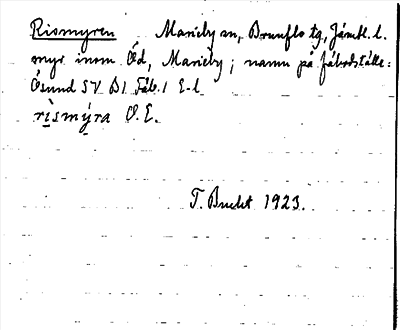 Rismyren Marieby sn, Brunflo tg, Jämtl. l.
myr inom Öd, Marieby; namn på fäbodställe:
Ösund SV Bl Fäb. 1 E-l
rismýra O. E.
T. Bucht 1923.